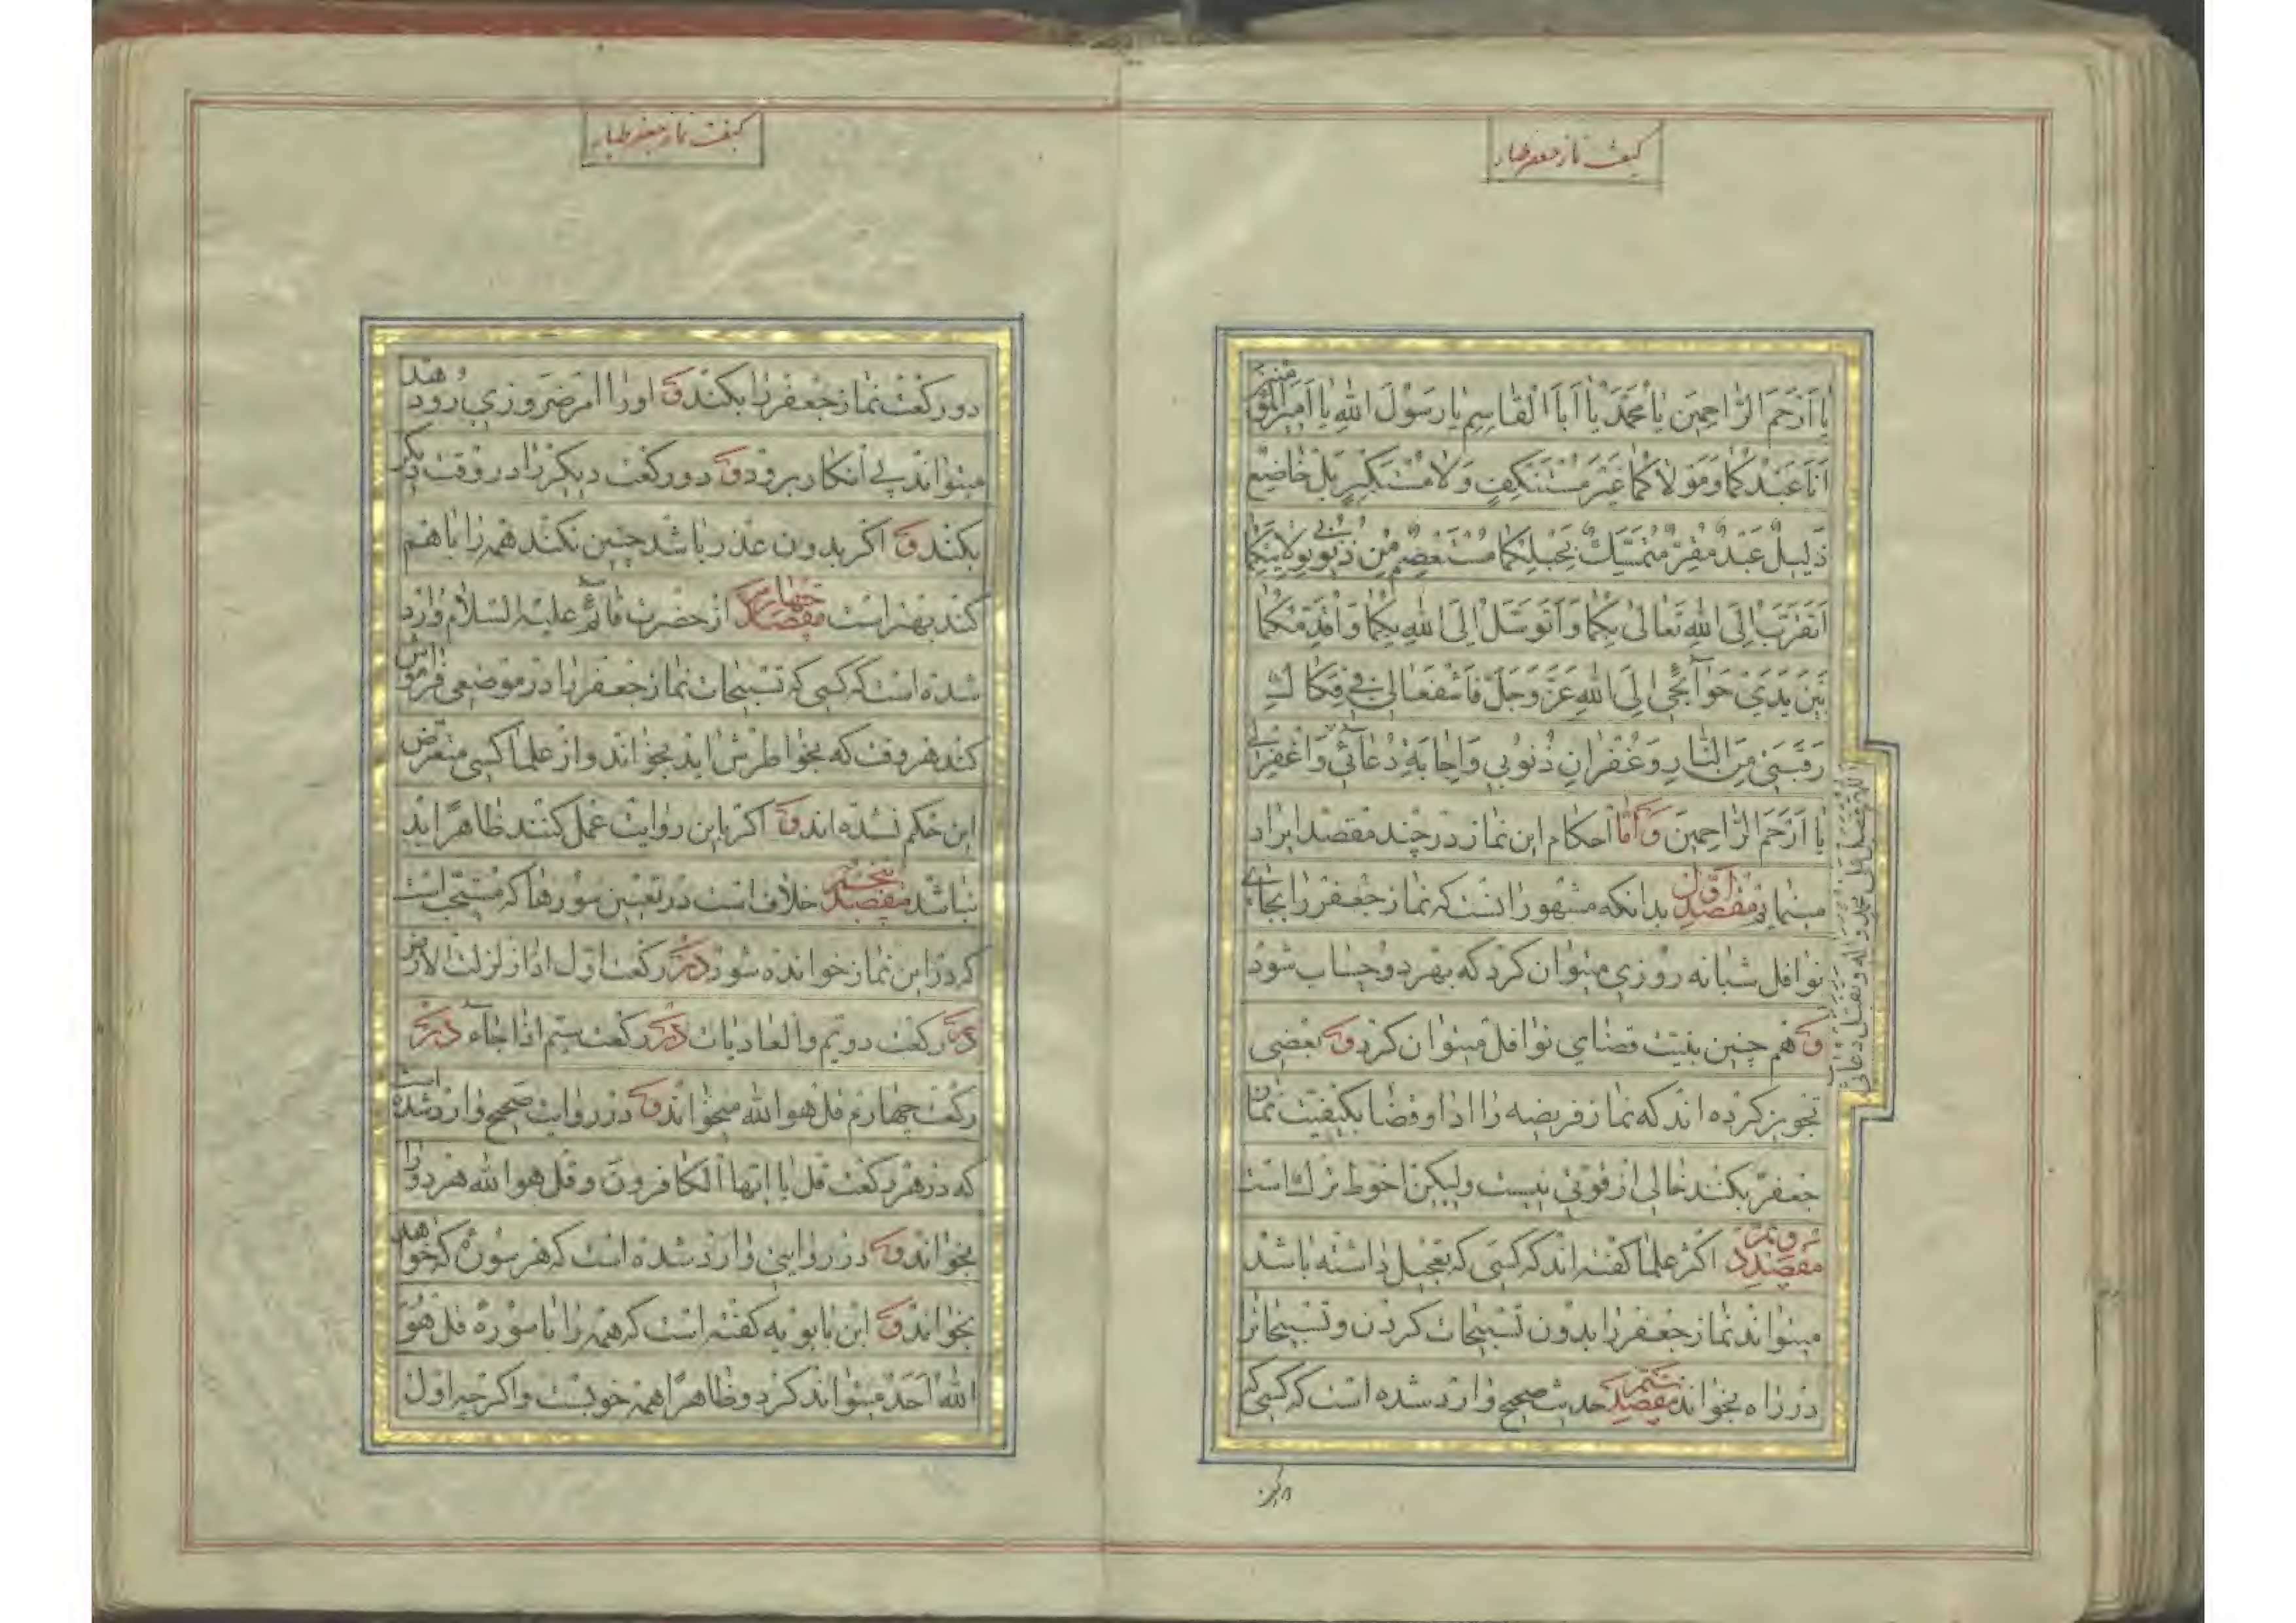 کیفیت نماز جعفر طیار
یا اَرْحَمَ الرّٰاحِمینَ یٰا مُحَمَّدُ یٰا اَبَا الْقٰاسِمِ یٰا رَسُولَ اللهِ یٰا اَمیرَ الْمُؤْمِنینَ
اَنَا عَبْدُکُمٰا وَمَوْلاٰکُمٰا غَیْرُ مُسْتَنْکِفٍ وَلاٰ مُسْتَکْبِرٍ بَلْ خٰاضِعٌ
ذَلیلٌ عَبْدٌ مُقِرٌّ مُتَمَسِّكٌ بِحَبْلِکُمٰا مُسْتَعْصِمٌ مِنْ ذُنُوبی بِوِلاٰیَتِکُمٰا
اَتَقَرَّبُ اِلَی اللهِ تَعٰالیٰ بِکُمٰا وَاَتَوَسَّلُ اِلَی اللهِ بِکُمٰا وَاُقَدِّمُکُمٰا
بَیْنَ یَدَیْ حَوٰآئِجی اِلَی اللهِ عَزَّ وَجَلَّ فَاشْفَعٰا لی فی فِکٰاكِ
رَقَبَتی مِنَ النّٰارِ وَغُفْرٰانِ ذُنُوبی وَاِجٰابَةِ دُعٰآئی وَاغْفِرْ لی
یٰا اَرْحَمَ الرّٰاحِمینَ وَ اَمّا احکام این نماز در چند مقصد ایراد
مینماید مقصد اوّل بدانکه مشهور انست که نماز جعفر را بجای
نوافل شبانه روزی میتوان کرد که بهر دو حساب شود
وَ هم چنین بنیّت قضای نوافل میتوان کرد وَ بعضی
تجویز کرده اند که نماز فریضه را ادا و قضا بکیفیت نماز
جعفر بکنند خالی از قوتی نیست ولیکن احوط ترك است
مقصد دویّم اکثر علما گفته اند که کسی که تعجیل داشته باشد
میتواند نماز جعفر را بدون تسبیحات کردن و تسبیحاترا
در راه بخواند مقصد سیّم حدیث صحیح وارد شده است که کسی که
اللهم صل علی محمد واله وتقبل دعائی
کیفیت نماز جعفر طیار
دو رکعت نماز جعفر را بکند وَ او را امر ضروری رو دهد
میتواند پی انکار برود وَ دو رکعت دیگر را در وقت دیگر
بکند وَ اگر بدون عذر باشد چنین نکند همه را با هم
کند بهتر است مقصد چهارم از حضرت قائم علیه السلام وارد
شده است که کسی که تسبیحات نماز جعفر را در موضعی فراموش
کند هر وقت که بخواطرش اید بخواند و از علما کسی متعرض
این حکم نشده اند وَ اگر باین روایت عمل کنند ظاهرًا بد
نباشد مقصد پنجم خلاف است در تعیین سورها که مستحب است
که در این نماز خوانده شود در رکعت اول اذا زلزلت الارض
در رکعت دویم والعادیات در رکعت سیم اذا جآء در
رکعت چهارم قل هو الله میخواند وَ در روایت صحیح وارد شده است
که در هر رکعت قل یا ایها الکافرون و قل هو الله هر دو را
بخواند وَ در روایتی وارد شده است که هر سوره که خواهد
بخواند وَ ابن بابویه گفته است که همه را با سوره قل هو
الله احد میتواند کرد و ظاهرًا همه خوبست و اگر چه اول